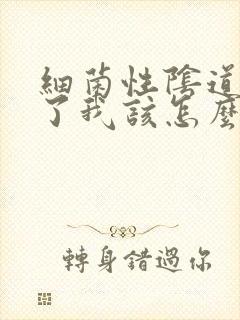 細菌性陰道
了我該怎麼
轉身錯過你